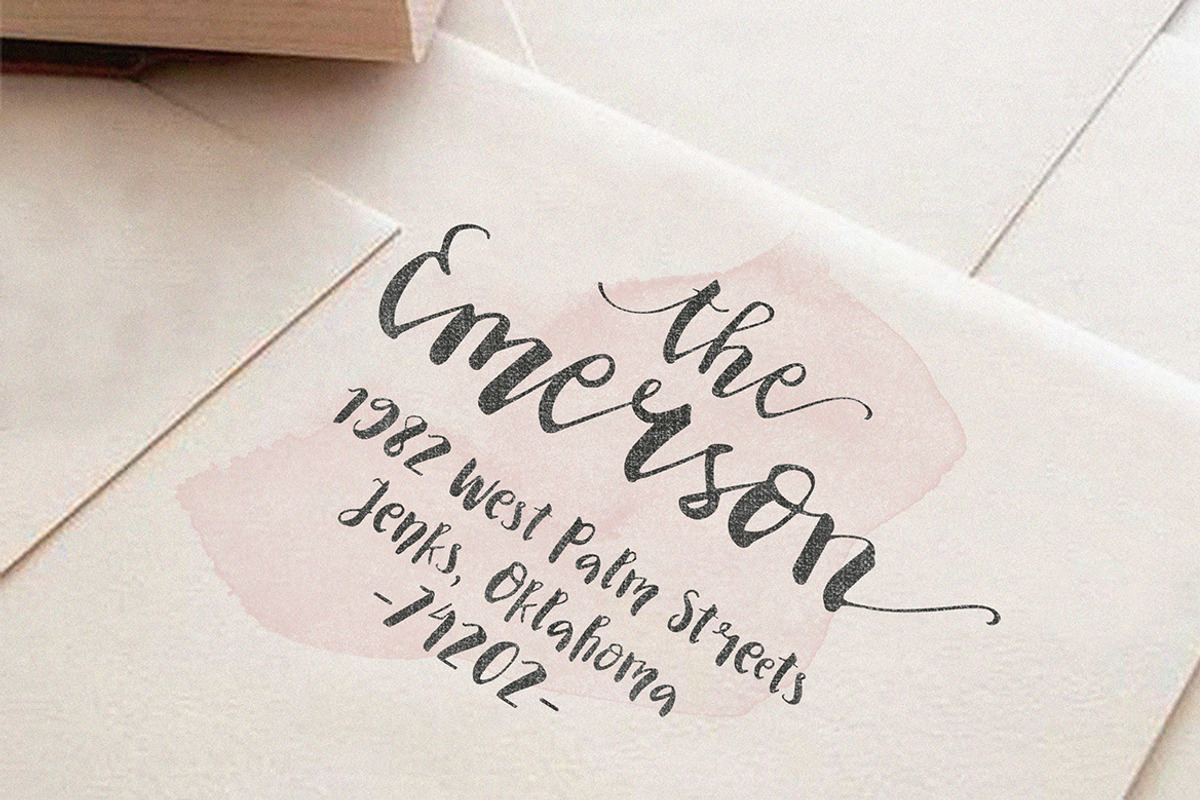 the
Emerson
1982 West Palm Streets
Jenks, Oklahoma
-74202-